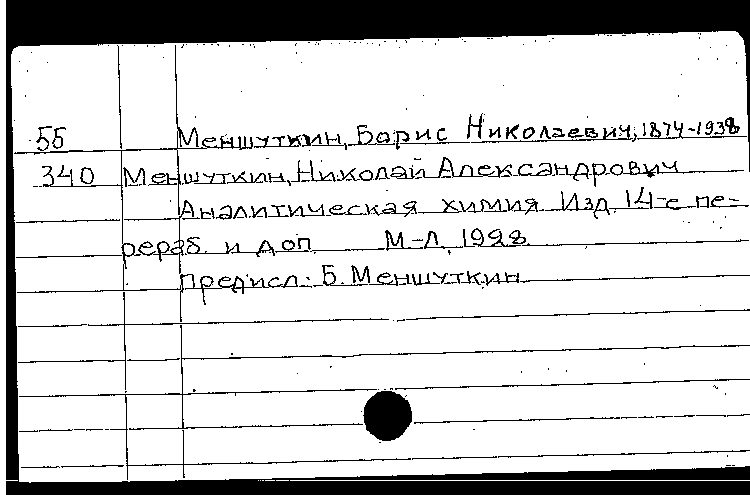 55 Меншуткин, Борис Николаевич, 1874-1938
340 Меншуткин, Николай Александрович
Аналитическая химия Изд. 14-е пе-
рераб. и доп М-Л, 1928
предисл. Б. Меншуткин